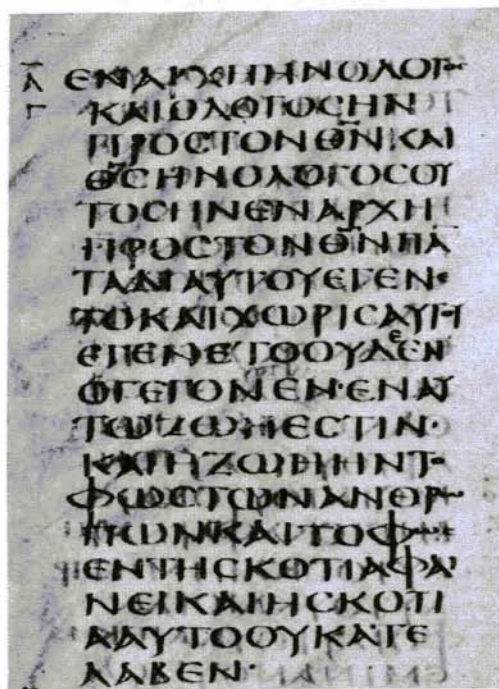 Α̅ ΕΝΑΡΧΗΗΝΟΛΟΓΟ
Γ ΚΑΙΟΛΟΓΟϹΗΝ
ΠΡΟϹΤΟΝΘ̅Ν̅ΚΑΙ
Θ̅Ϲ̅ΗΝΟΛΟΓΟϹΟΥ
ΤΟϹΗΝΕΝΑΡΧΗ
ΠΡΟϹΤΟΝΘ̅Ν̅ΠΑ
ΤΑΔΙΑΥΤΟΥΕΓΕΝΕ
ΤΟΚΑΙΧΩΡΙϹΑΥΤΟΥ
ΕΓΕΝΕΤΟΟΥΔΕΝ
ΟΓΕΓΟΝΕΝ·ΕΝΑΥ
ΤΩΖΩΗΕϹΤΙΝ·
ΚΑΙΗΖΩΗΗΝΤΟ
ΦΩϹΤΩΝΑΝΘΡΩ
ΠΩΝΚΑΙΤΟΦΩ
ΕΝΤΗϹΚΟΤΙΑΦΑΙ
ΝΕΙΚΑΙΗϹΚΟΤΙ
ΑΑΥΤΟΟΥΚΑΤΕ
ΛΑΒΕΝ·